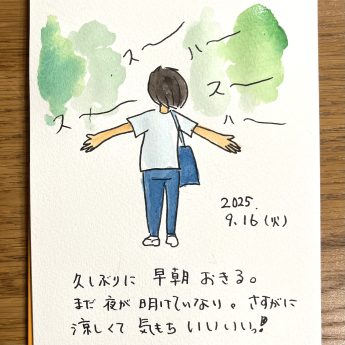 スー ハー
スー スー
ハー
2025.
9.16(火)
久しぶりに 早朝 おきる。
まだ 夜が 明けていない。さすがに
涼しくて 気もち いいいいっ!